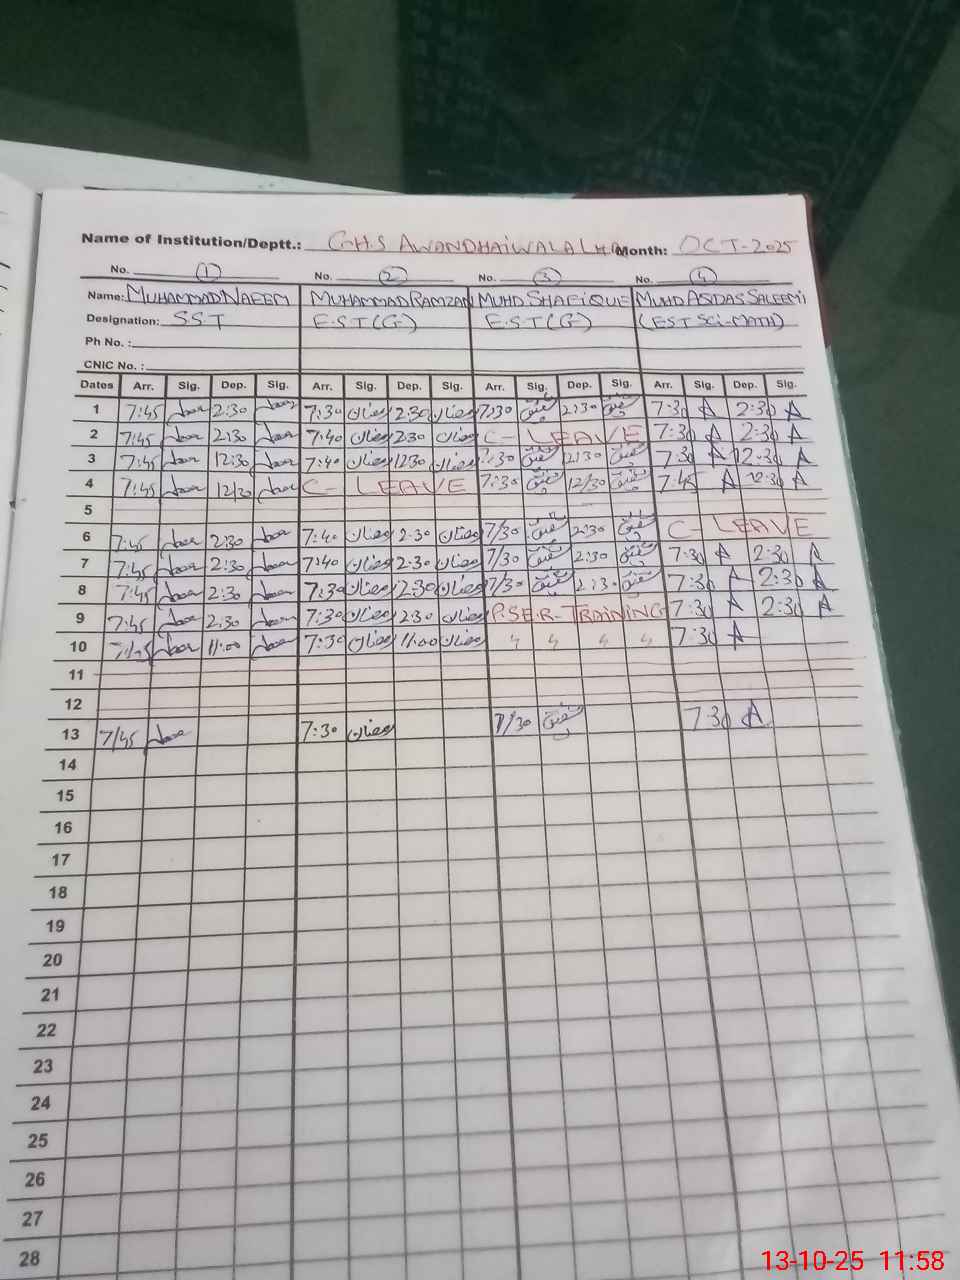 Name of Institution/Deptt.: G.H.S AWANDHAIWALA LHR Month: OCT-2025
No. 1 No. 2 No. 3 No. 4
Name: MUHAMMAD NAEEM MUHAMMAD RAMZAN MUHD SHAFIQUE MUHD ASDAS SALEEMI
Designation: S.S.T E.S.T(G) E.S.T(G) (EST SCI-MATH)
Ph No. :
CNIC No. :
Dates Arr. Sig. Dep. Sig. Arr. Sig. Dep. Sig. Arr. Sig. Dep. Sig. Arr. Sig. Dep. Sig.
1 7:45 2:30 7:30 رمضان 2:30 رمضان 7:30 شفیق 2:30 شفیق 7:30 A 2:30 A
2 7:45 2:30 7:40 رمضان 2:30 رمضان C- LEAVE 7:30 A 2:30 A
3 7:45 12:30 7:40 رمضان 12:30 رمضان 7:30 شفیق 12:30 شفیق 7:30 A 12:30 A
4 7:45 12/30 C- LEAVE 7:30 شفیق 12/30 شفیق 7:45 A 12:30 A
5
6 7:45 2:30 7:40 رمضان 2:30 رمضان 7/30 شفیق 2:30 شفیق C- LEAVE
7 7:45 2:30 7:40 رمضان 2:30 رمضان 7/30 شفیق 2:30 شفیق 7:30 A 2:30 A
8 7:45 2:30 7:30 رمضان 2:30 رمضان 7/30 شفیق 2:30 شفیق 7:30 A 2:30 A
9 7:45 2:30 7:30 رمضان 2:30 رمضان P.S.E.R- TRAINING 7:30 A 2:30 A
10 7:45 11:00 7:30 رمضان 11:00 رمضان 〃 〃 〃 〃 7:30 A
11
12
13 7/45 7:30 رمضان 7/30 شفیق 7:30 A
14
15
16
17
18
19
20
21
22
23
24
25
26
27
28
13-10-25 11:58